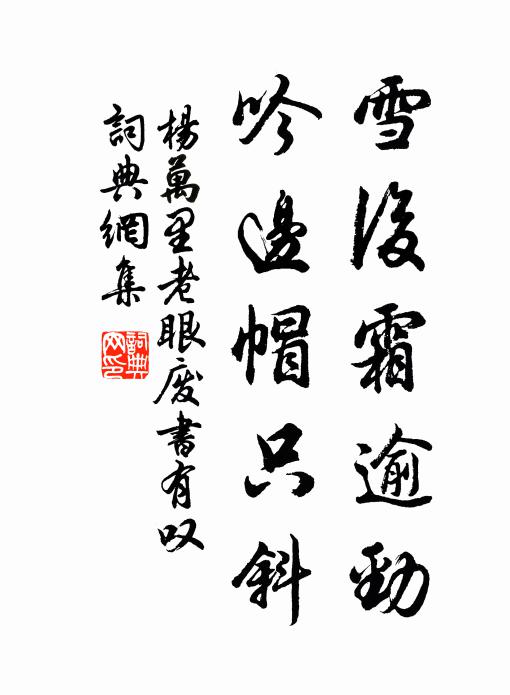 雪後霜逾勁
吟邊帽只斜
楊萬里老眼廢書有叹
詞典網集
詞典網印